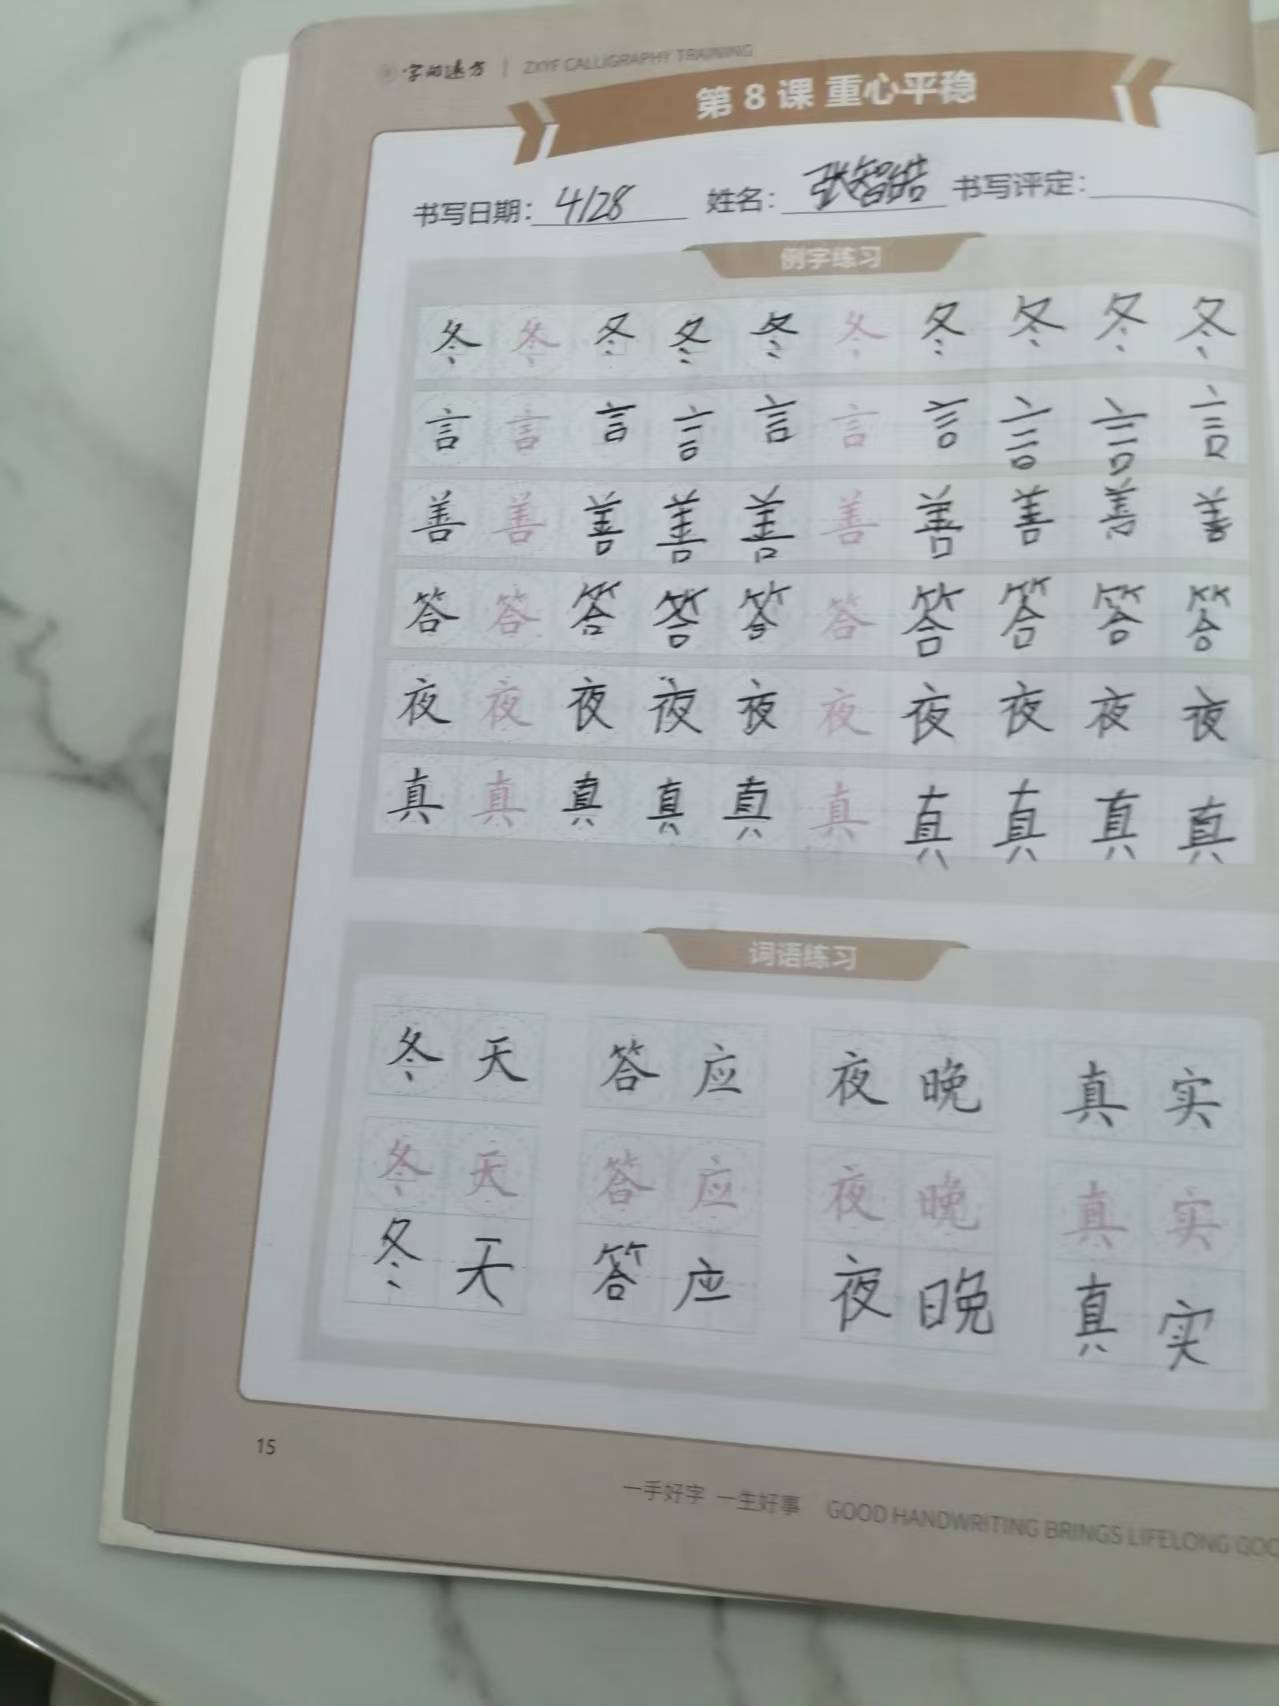 字的远方 | ZXYF CALLIGRAPHY TRAINING
第 8 课 重心平稳
书写日期: 4/28 姓名: 张智皓 书写评定:
例字练习
冬 冬 冬 冬 冬 冬 冬 冬 冬 冬
言 言 言 言 言 言 言 言 言 言
善 善 善 善 善 善 善 善 善 善
答 答 答 答 答 答 答 答 答 答
夜 夜 夜 夜 夜 夜 夜 夜 夜 夜
真 真 真 真 真 真 真 真 真 真
词语练习
冬 天 答 应 夜 晚 真 实
冬 天 答 应 夜 晚 真 实
冬 天 答 应 夜 晚 真 实
15
一手好字 一生好事 GOOD HANDWRITING BRINGS LIFELONG